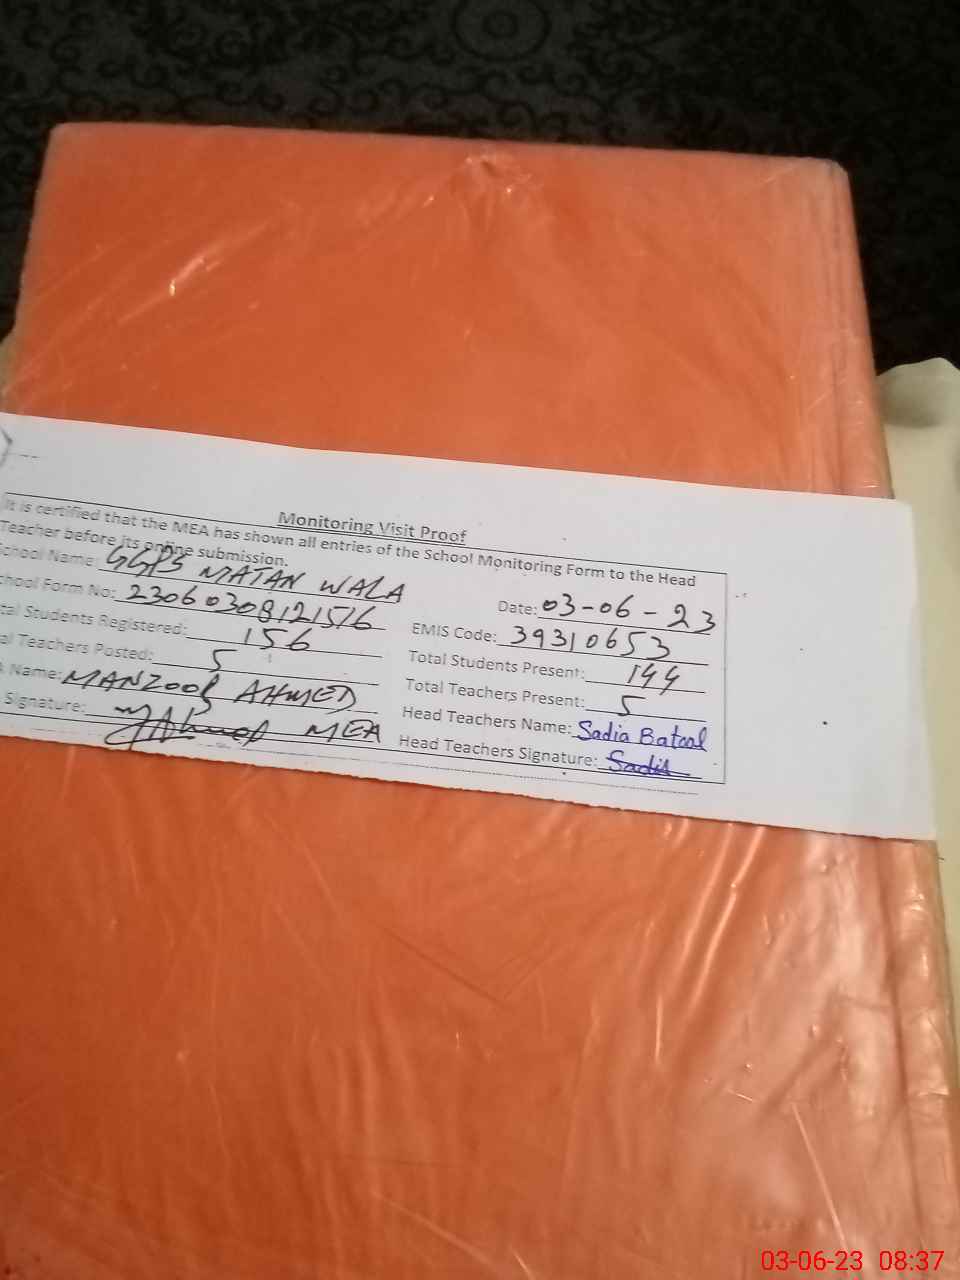 Monitoring Visit Proof
It is certified that the MEA has shown all entries of the School Monitoring Form to the Head
Teacher before its online submission.
School Name: GGPS MATAN WALA
Date: 03-06-23
chool Form No: 23060308121516
EMIS Code: 39310653
tal Students Registered: 156
Total Students Present: 144
al Teachers Posted: 5
Total Teachers Present: 5
Name: MANZOOR AHMED
Head Teachers Name: Sadia Batool
Signature: MEA
Head Teachers Signature: Sadia
03-06-23 08:37